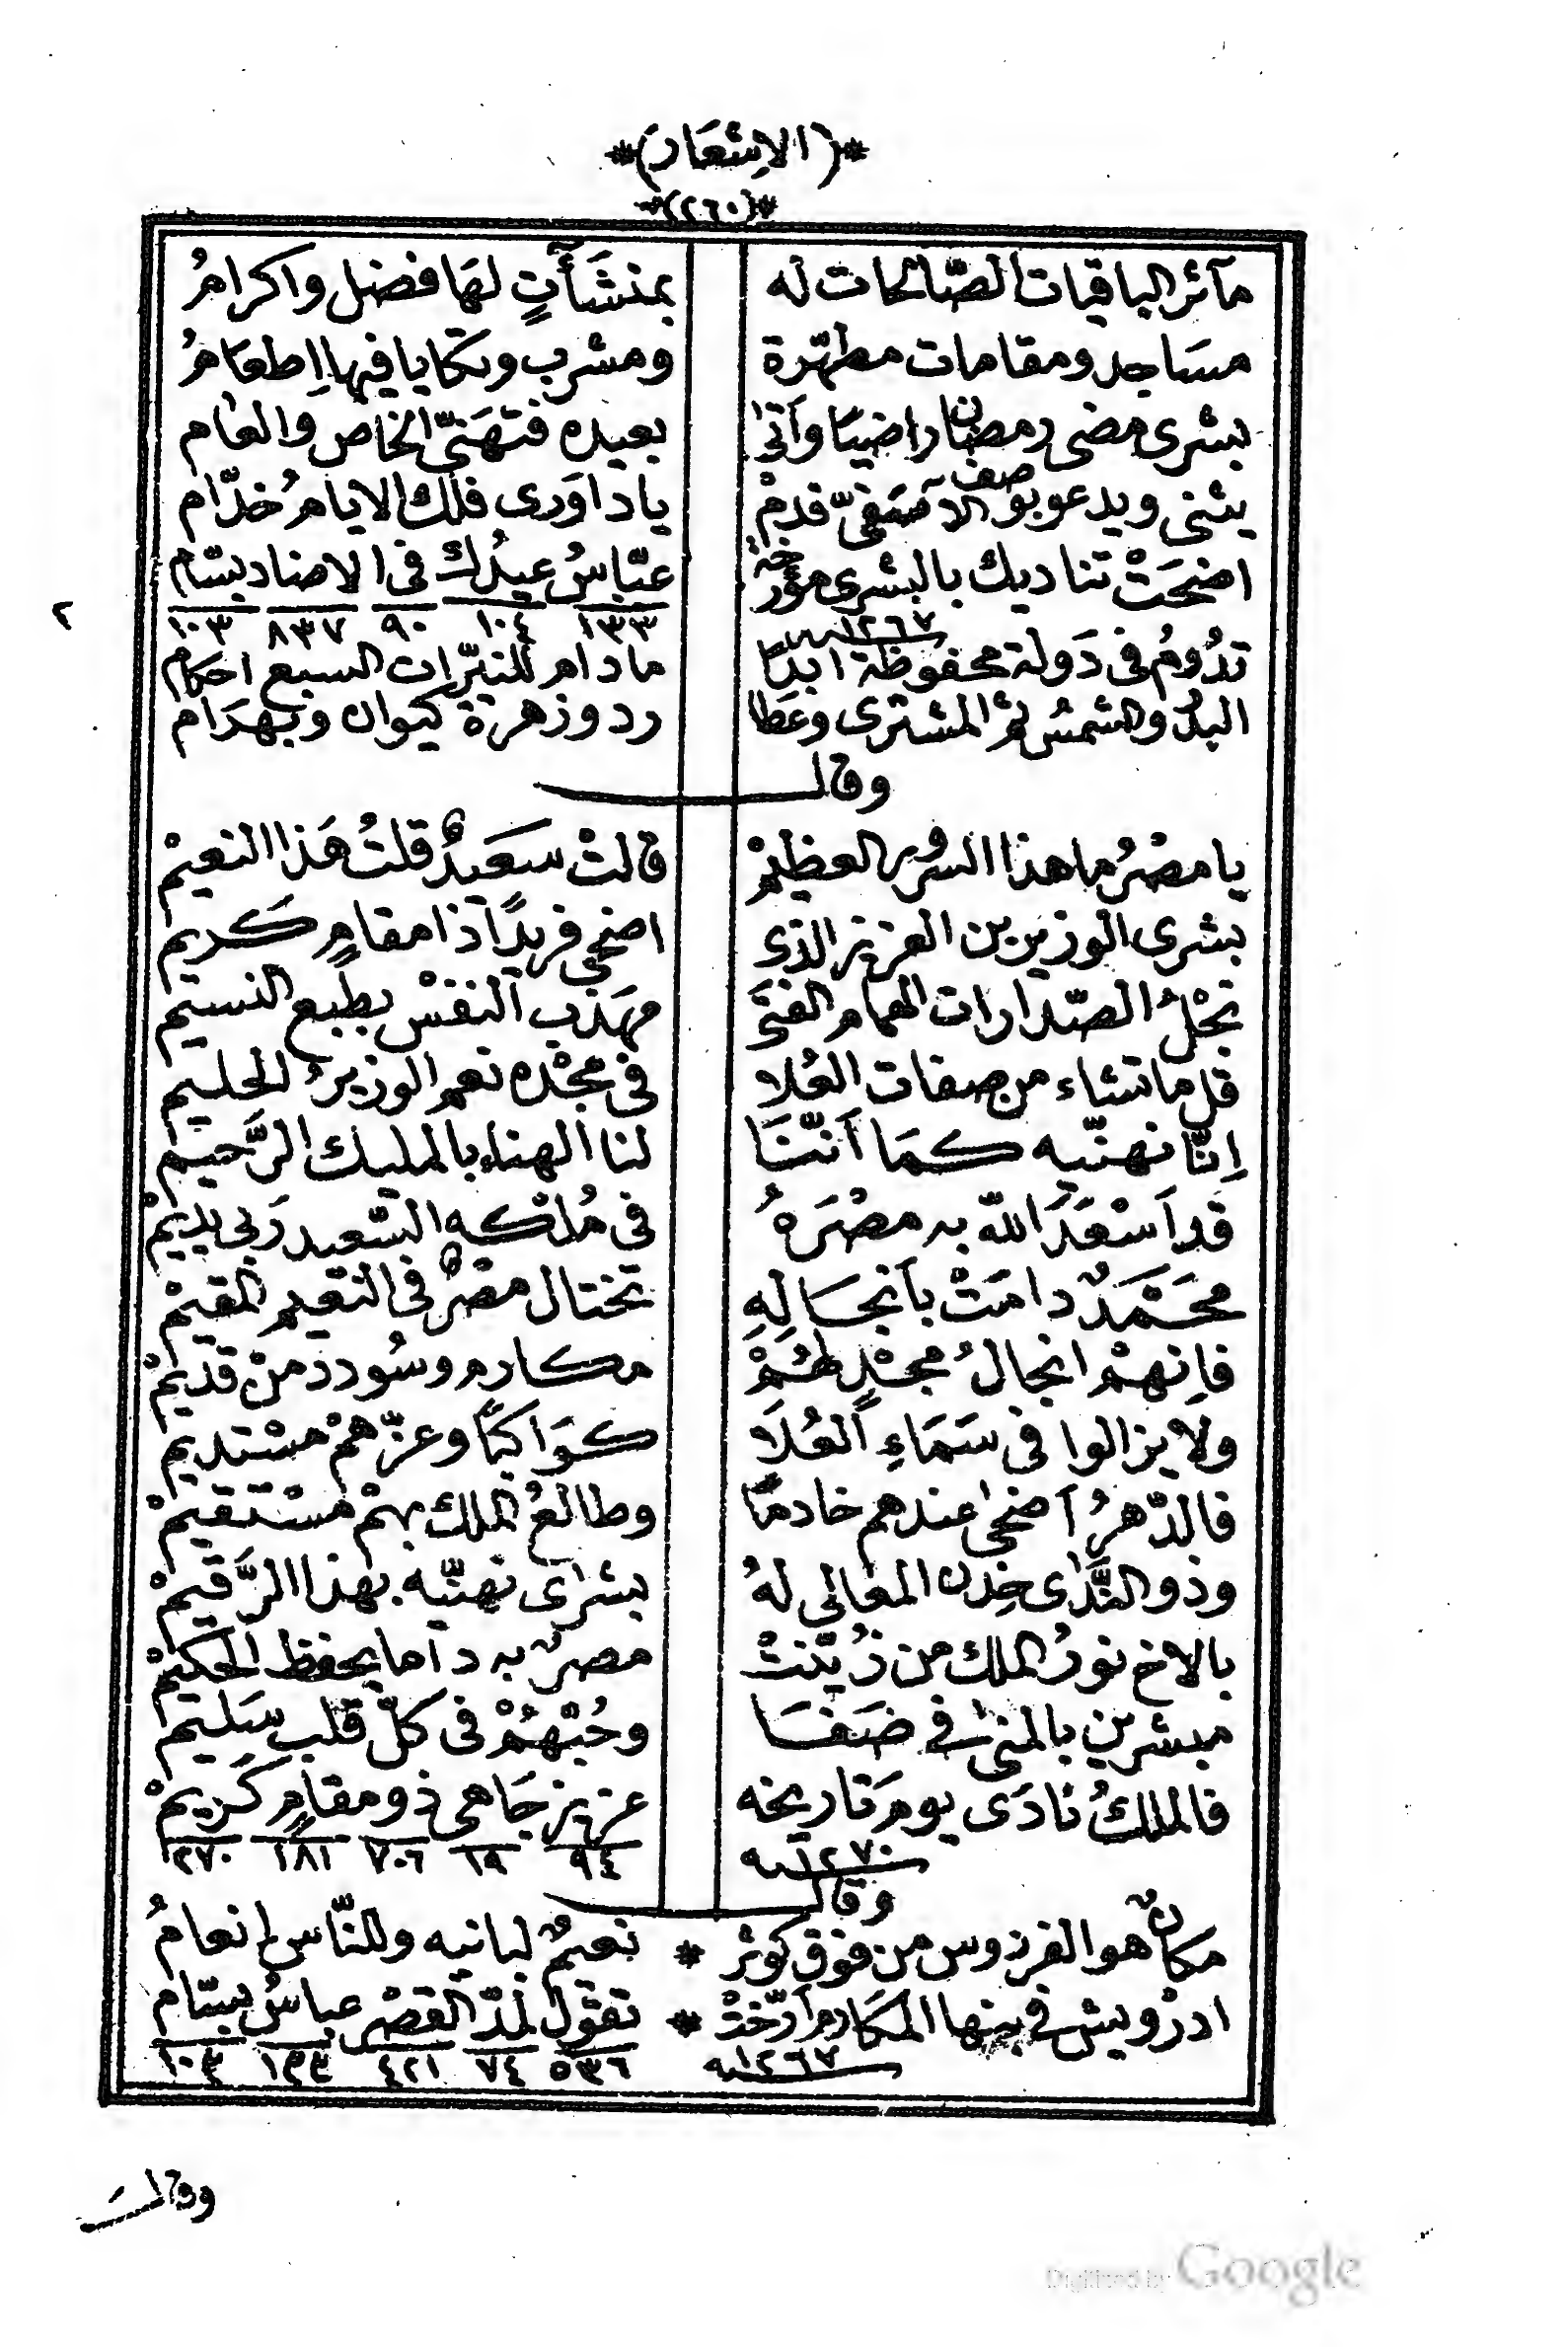 *(الاِشعَار)*
*(٢٦٠)*
مآثر الباقيات الصّالحات له بمنشَأٓتٍ لهَا فضل واكرامُ
مسَاجد ومقامات مطهّرة ومشرب وتكايا فيها اِطعَامُ
بشرى مضى رمضان راضيًا وأتىٰ بعيده فتهَنّى الخاص والعام
يثنى ويدعو بو صف الآصَفىّ قدمْ ياداوَرى فلك الايامُ خدّام
اضحَتْ تناديك بالبشرى مؤرّخة عبّاسُ عيدُك فى الاضاد بسّام
١٢٦٧ ١٣٣ ١٠٤ ٩٠ ٨٣٧ ١٠٣
٢
تدُومُ فى دَولة محفوظة ابدًا مادام للنيّرات السبع احكام
البدُ والشمسُ ثمّ المشترى وعَطا رد وزهرة كيوان وبهرَام
وقال
يا مصْرُ ما هذا السرور العظيمْ قالتْ سعَيدٌ قلتُ هَذا النعيمْ
بشرى الوزير بن العزيز الذى اضحى فريدًا ذا مقامٍ كريم
نجْلُ الصّدارات الهمام الفتَى مهَذب النفسْ بطبع النسيم
قل ما تشاء من صفات العُلا فى مجْده نعم الوزيرُ الحليم
اِنّا نهنّيه كمَا أنّنَا لنا الهناء بالمليك الرَّحيم
قد اَسْعَدَ الله به مصْرَهُ فى مُلْكه السّعيد رَبى يديمْ
محَمّمَدٌ دامَتْ بأنجَالِهِ تختال مصْرٌ فى النّعيم المقيمْ
فاِنهمْ انجالُ مجْدٍ لهُمْ مكارم وسُودد منْ قديمْ
ولا يزالوا فى سَمَاءِ العُلَا كوَاكبًا وعزّهمْ مسْتديم
فالدّهرُ اَضحىٰ عندهم خادمًا وطالعُ الملك بهمْ مسْتَقيمْ
وذو النَّدٰى خِدن المعالى لهُ بشراى نهنّيه بهذا الرَّقيمْ
بالاخ نورُ الملك من زُيّنتْ مصرٌ به داما بحفظ الحكيمْ
مبشرين بالمنىٰ فى صَفَا وحُبّهُمْ فى كلّ قلب سَليم
فالملكُ نادَى يومَ تاريخه عزيز جَاهى ذو مقامٍ كَريمْ
١٢٧٠ ٩٤ ١٩ ٧٠٦ ١٨١ ٢٧٠
وقال
مكانٌ هو الفردوس من فوق كوثر * نعيمٌ لبانيه وللنّاس اِنعامُ
ادرْويش فى بنها المكَارم أرّختْ * تقوْل لمدّ القصْر عباسُ بسّام
١٢٦٧ ٥٣٦ ٧٤ ٤٢١ ١٣٣ ١٠٣
وقال
Digitized by Google